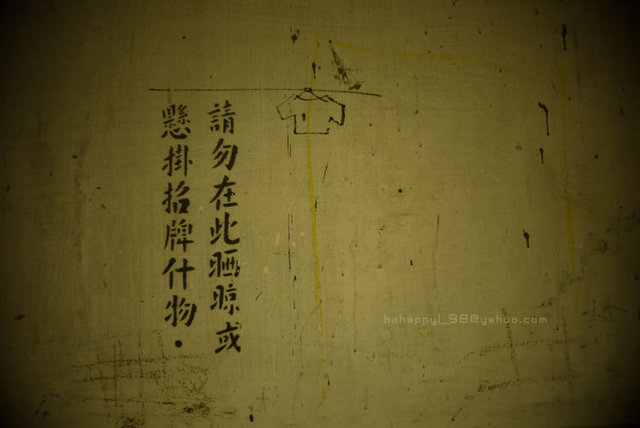 請勿在此晒晾或
懸掛招牌什物.
behappyl_98@yahoo.com